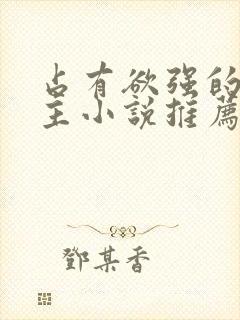 占有欲强的
主小說推薦
鄧某香